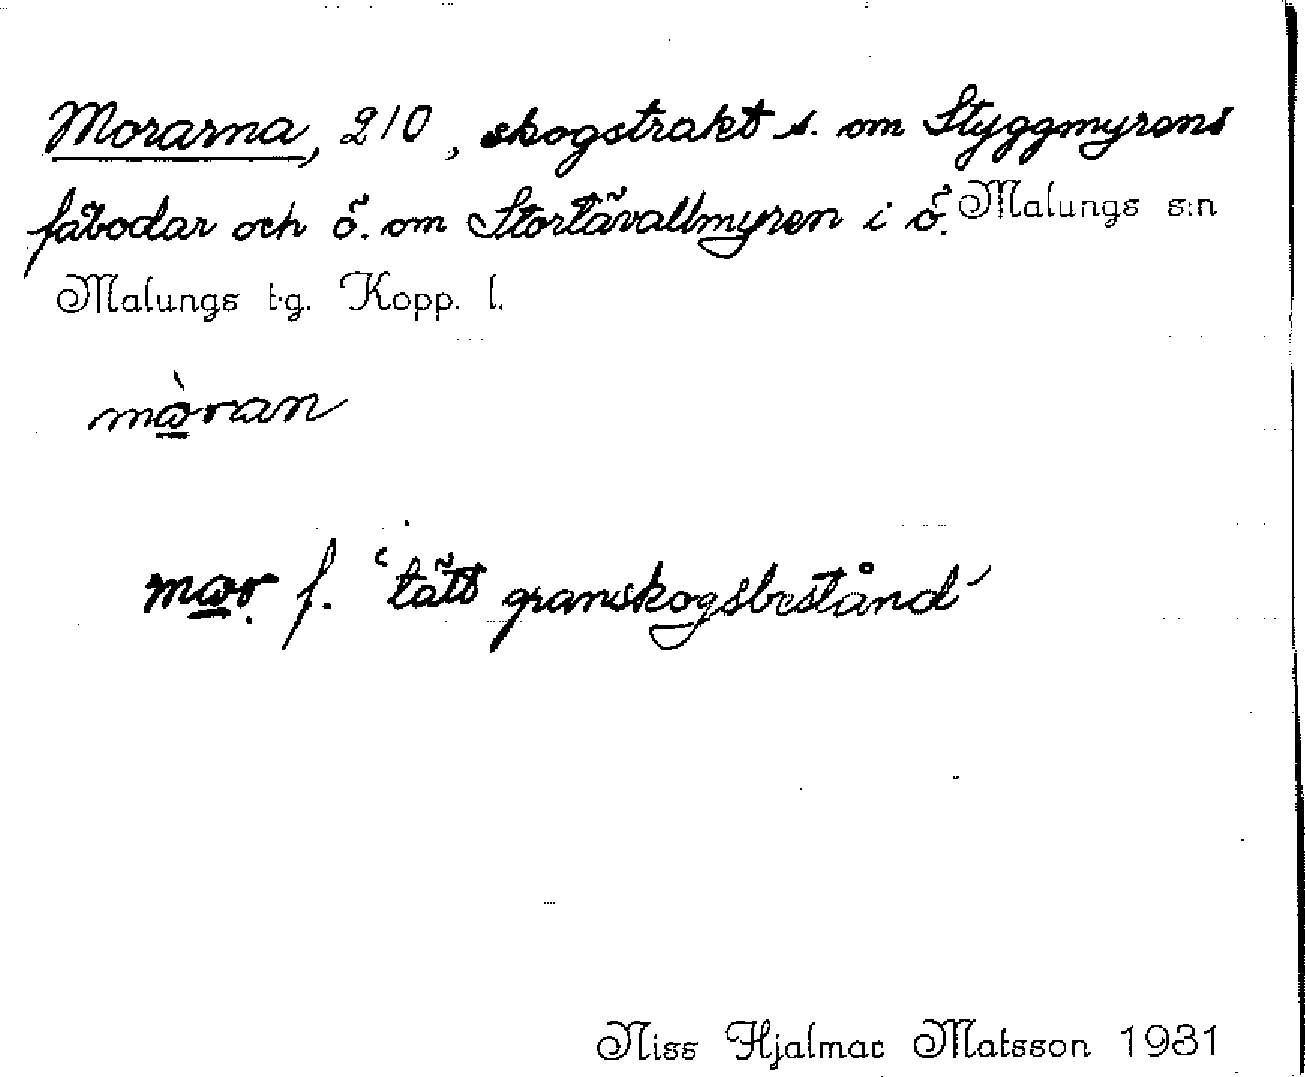 Morarna, 210, skogstrakt s. om Styggmyrens
fäbodar och ö. om Stortävallmyren i ö. Malungs s:n
Malungs t.g. Kopp. l.
mòran
mor. f. 'tätt granskogsbestånd'
Niss Hjalmar Matsson 1931